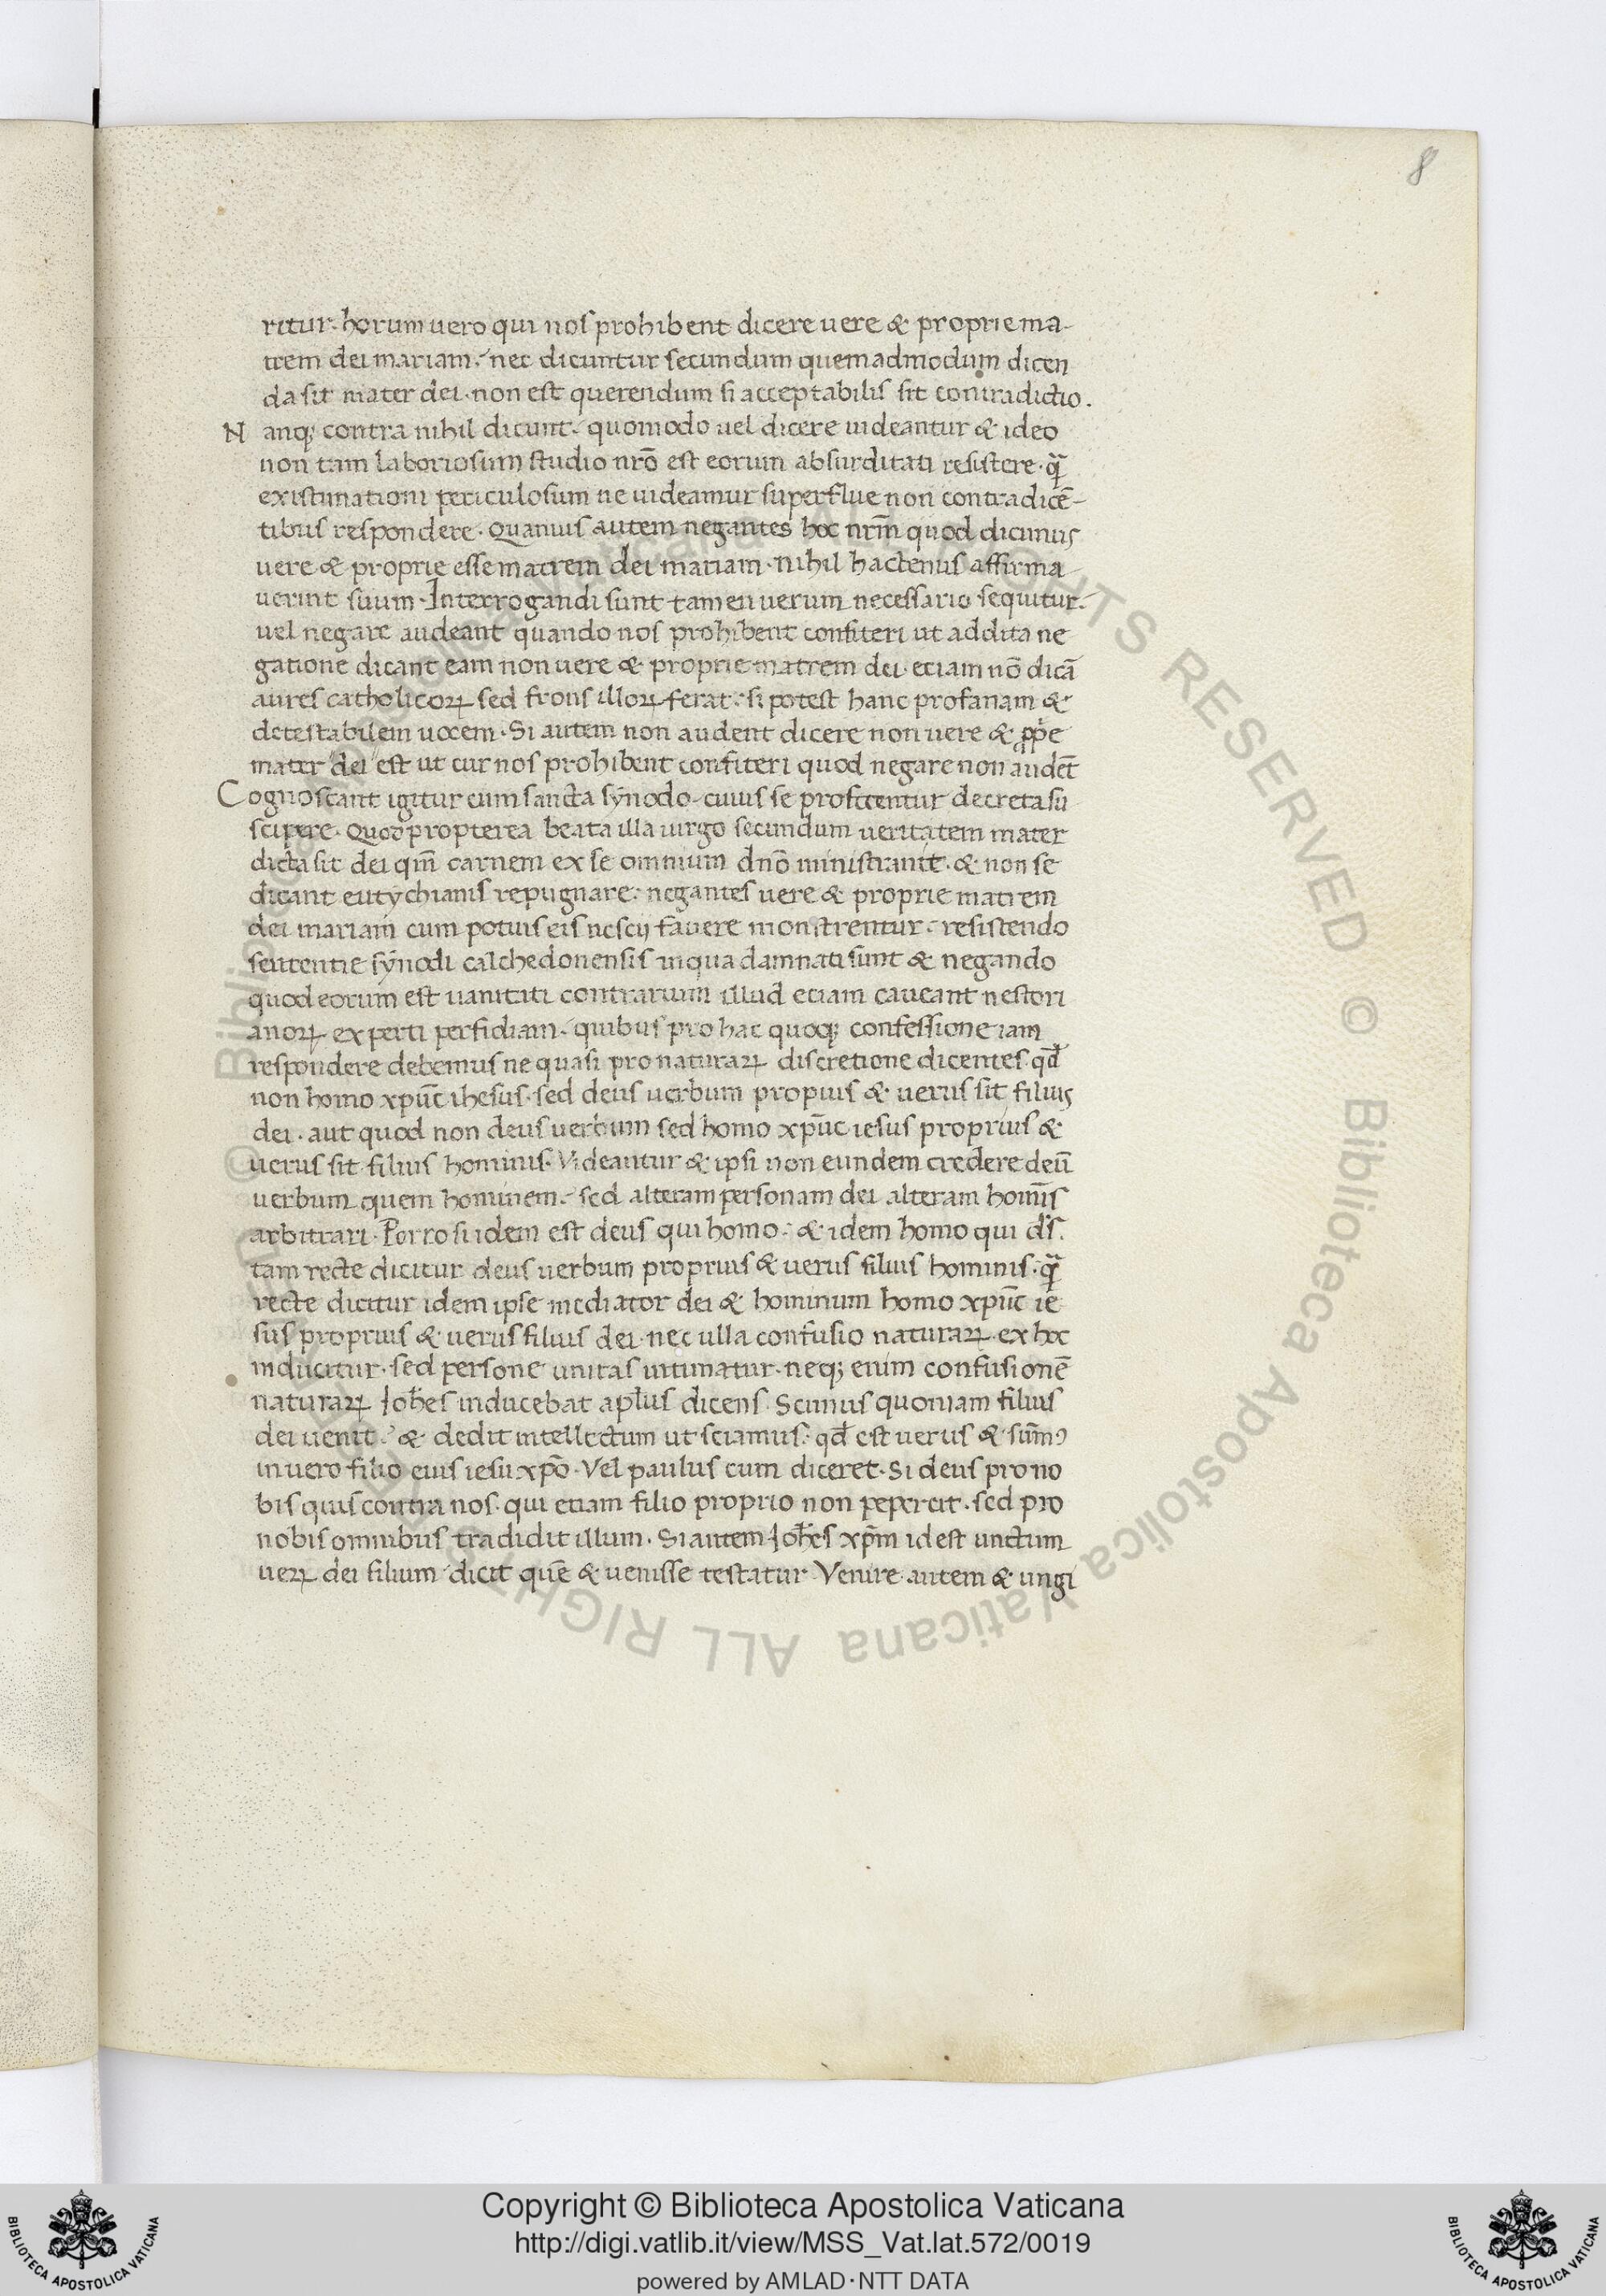 8
ritur. horum uero qui nos prohibent dicere uere & proprie ma-
trem dei mariam. nec dicuntur secundum quemadmodum dicen
da sit mater dei. non est querendum si acceptabilis sit contradictio.
Nanq; contra nihil dicunt. quomodo uel dicere uideantur & ideo
non tam laboriosum studio nrō est eorum absurditati resistere. q̄
existimationi periculosum ne uideamur superflue non contradicē-
tibus respondere. Quamuis autem negantes hoc nr̄m quod dicimus
uere & proprie esse matrem dei mariam. nihil hactenus affirma
uerint suum. Interrogandi sunt tamen uerum necessario sequitur.
uel negare audeant quando nos prohibent confiteri ut addita ne
gatione dicant eam non uere & proprie matrem dei. etiam nō dicā
aures catholicoꝝ sed frons illoꝝ ferat. si potest hanc profanam &
detestabilem uocem. Si autem non audent dicere non uere & ꝓpͥe
mater dei est ut cur nos prohibent confiteri quod negare non audēt
Cognoscant igitur cum sancta synodo. cuius se profitentur decreta su
scipere. Quod propterea beata illa uirgo secundum ueritatem mater
dicta sit dei qm̄ carnem ex se omnium dnō ministrauit. & non se
dicant eutychianis repugnare. negantes uere & proprie matrem
dei mariam cum potius eis nescij fauere monstrentur. resistendo
sententie synodi calchedonensis in qua damnati sunt & negando
quod eorum est uanititi contrarium illud etiam caueant nestori
anoꝝ experti perfidiam. quibus pro hac quoq; confessione iam
respondere debemus ne quasi pro naturaꝝ discretione dicentes. qđ
non homo xp̄uc ihesus. sed deus uerbum propius & uerus sit filius
dei. aut quod non deus uerbum sed homo xp̄uc iesus proprius &
uerus sit filius hominis. Videantur & ipsi non eundem credere deū
uerbum quem hominem. sed alteram personam dei alteram homīs
arbitrari. Porro si idem est deus qui homo. & idem homo qui ds̄.
tam recte dicitur deus uerbum proprius & uerus filius hominis. q̄
recte dicitur idem ipse mediator dei & hominum homo xp̄uc ie
sus proprius & uerus filius dei. nec ulla confusio naturaꝝ ex hoc
inducitur. sed persone unitas intimatur. neq; enim confusionē
naturaꝝ Joh̄es inducebat apl̄us dicens. Scimus quoniam filius
dei uenit. & dedit intellectum ut sciamus. qđ est uerus & sum̄ꝰ
in uero filio eius iesu xp̄o. Vel paulus cum diceret. Si deus pro no
bis quis contra nos. qui etiam filio proprio non pepercit. sed pro
nobis omnibus tradidit illum. Si autem Joh̄es xp̄m id est unctum
ueꝝ dei filium dicit quē & uenisse testatur Venire autem & ungi
© Biblioteca Apostolica Vaticana ALL RIGHTS RESERVED
© Biblioteca Apostolica Vaticana ALL RIGHTS RESERVED
Copyright © Biblioteca Apostolica Vaticana
http://digi.vatlib.it/view/MSS_Vat.lat.572/0019
powered by AMLAD·NTT DATA
BIBLIOTECA APOSTOLICA VATICANA
BIBLIOTECA APOSTOLICA VATICANA